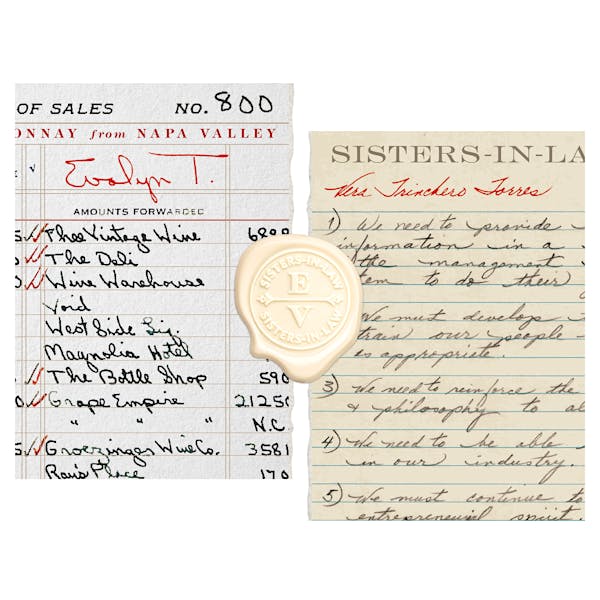 OF SALES NO. 800
ONNAY from NAPA VALLEY
V
Evalyn T.
AMOUNTS FORWARDED
Vintage Wine 6898
The Deli
Wine Warehouse
Void
West Side Liq.
Magnolia Hotel
The Bottle Shop 590
Grape Empire 21250
" " " N.C.
Groezinger Wine Co. 3581
Ray's Place 170
SISTERS-IN-LAW
E
V
SISTERS-IN-LAW
SISTERS-IN-LA
Vera Trinchero Torres
1) We need to provide
information in a
the management
tem to do their
We must develop
train our people
as appropriate.
3) We need to reinforce the
& philosophy to al
4) We need to be able
in our industry.
5) We must continue to
entrepreneurial spirit.